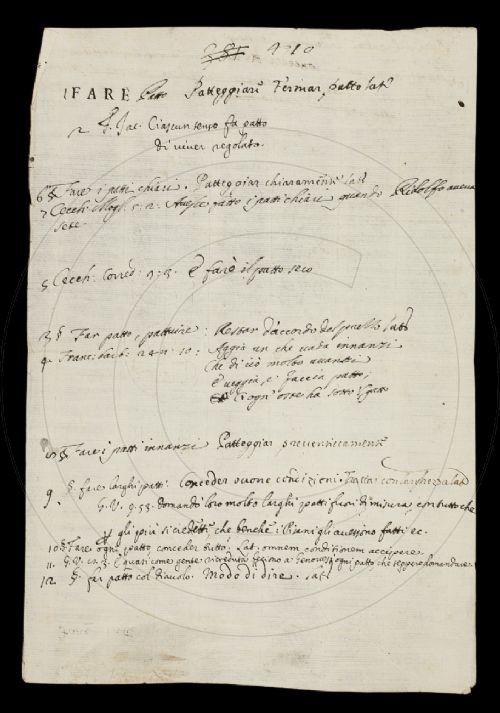 4210
FARE Patto Patteggiare Fermar patto lat.
2 Jac. Ciascun senso fa patto
di viver regolato.
6 § Fare i patti chiari. Patteggiar chiaramente lat.
7 Cecch. Mogl. 5. 2. patto i patti chiari quando Ridolfo
sete.
5 Cecch. Corred. 4. 3. E farè il patto seco
3 § Far patto, pattuire: Restar d'accordo del lat.
4 Franc. Barb. 24. 10: Aggia un che vada innanzi
che di ciò molto avanti
E veggia, e faccia patto;
ogni oste ha sotto il gatto
8 § Fare i patti innanzi Patteggiar preventivamente
9. § fare larghi patti: Conceder buone condizioni.
G. V. 9. 53. Domandò loro molto larghi patti fuori di misura con tutto che
gli più si credette che benche i Pisani gli avessono fatti ec.
10 § Fare ogni patto conceder tutto. Lat. omnem conditionem accipere.
11. G. V. E quasi come gente a Genovesi ogni patto che seppero domandare.
12 § far patto col Diavolo. Modo di dire. lat.